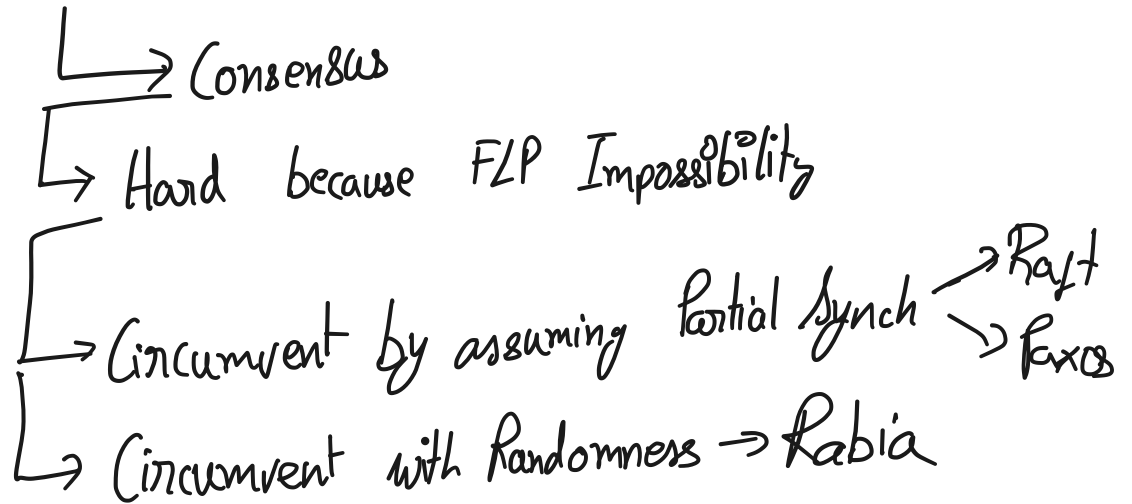 Consensus
Hard because FLP Impossibility
Circumvent by assuming Partial Synch
Raft
Paxos
Circumvent with Randomness → Rabia